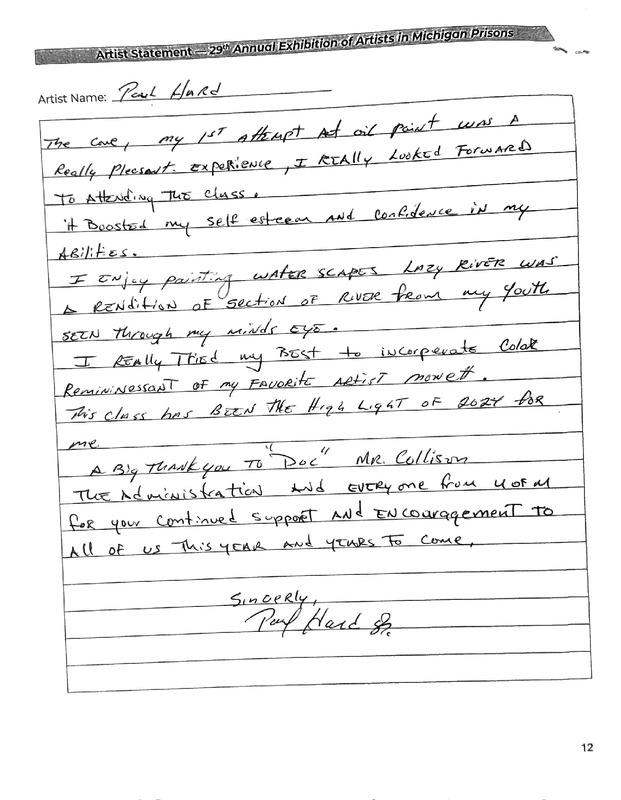 Artist Statement — 29th Annual Exhibition of Artists in Michigan Prisons
Artist Name: Paul Hard
The Cove, my 1st Attempt At oil paint was A
Really Pleasant. Experience, I Really Looked Forward
To Attending The Class.
it Boosted my Self esteem and Confidence in my
Abilities.
I Enjoy painting water scapes Lazy River was
A Rendition of Section of River from my Youth
Seen through my minds Eye.
I Really Tried my Best to incorperate Color
Remininessant of my Favorite Artist monett.
This class has Been The High Light of 2024 for
me.
A Big Thank you To "Doc" Mr. Collison
The Administration And Everyone from U of M
for your Continued Support And Encouragement To
All of us This Year and years To Come,
Sincerly,
Paul Hard Jr.
12